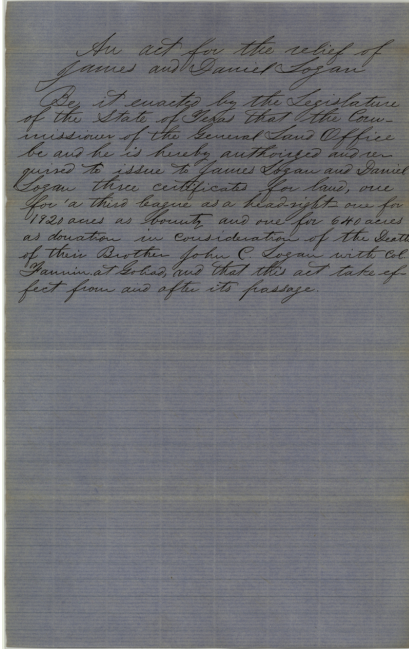 An act for the relief of
James and Daniel Logan
Be it enacted by the Legislature
of the State of Texas that the Com-
missioner of the General Land Office
be and he is hereby authorized and re-
quired to issue to James Logan and Daniel
Logan three certificates for land, one
for a third league as a headright one for
1920 acres as bounty and one for 640 acres
as donation in consideration of the Death
of their Brother John C. Logan with Col
Fannin at Goliad, and that this act take ef-
fect from and after its passage.